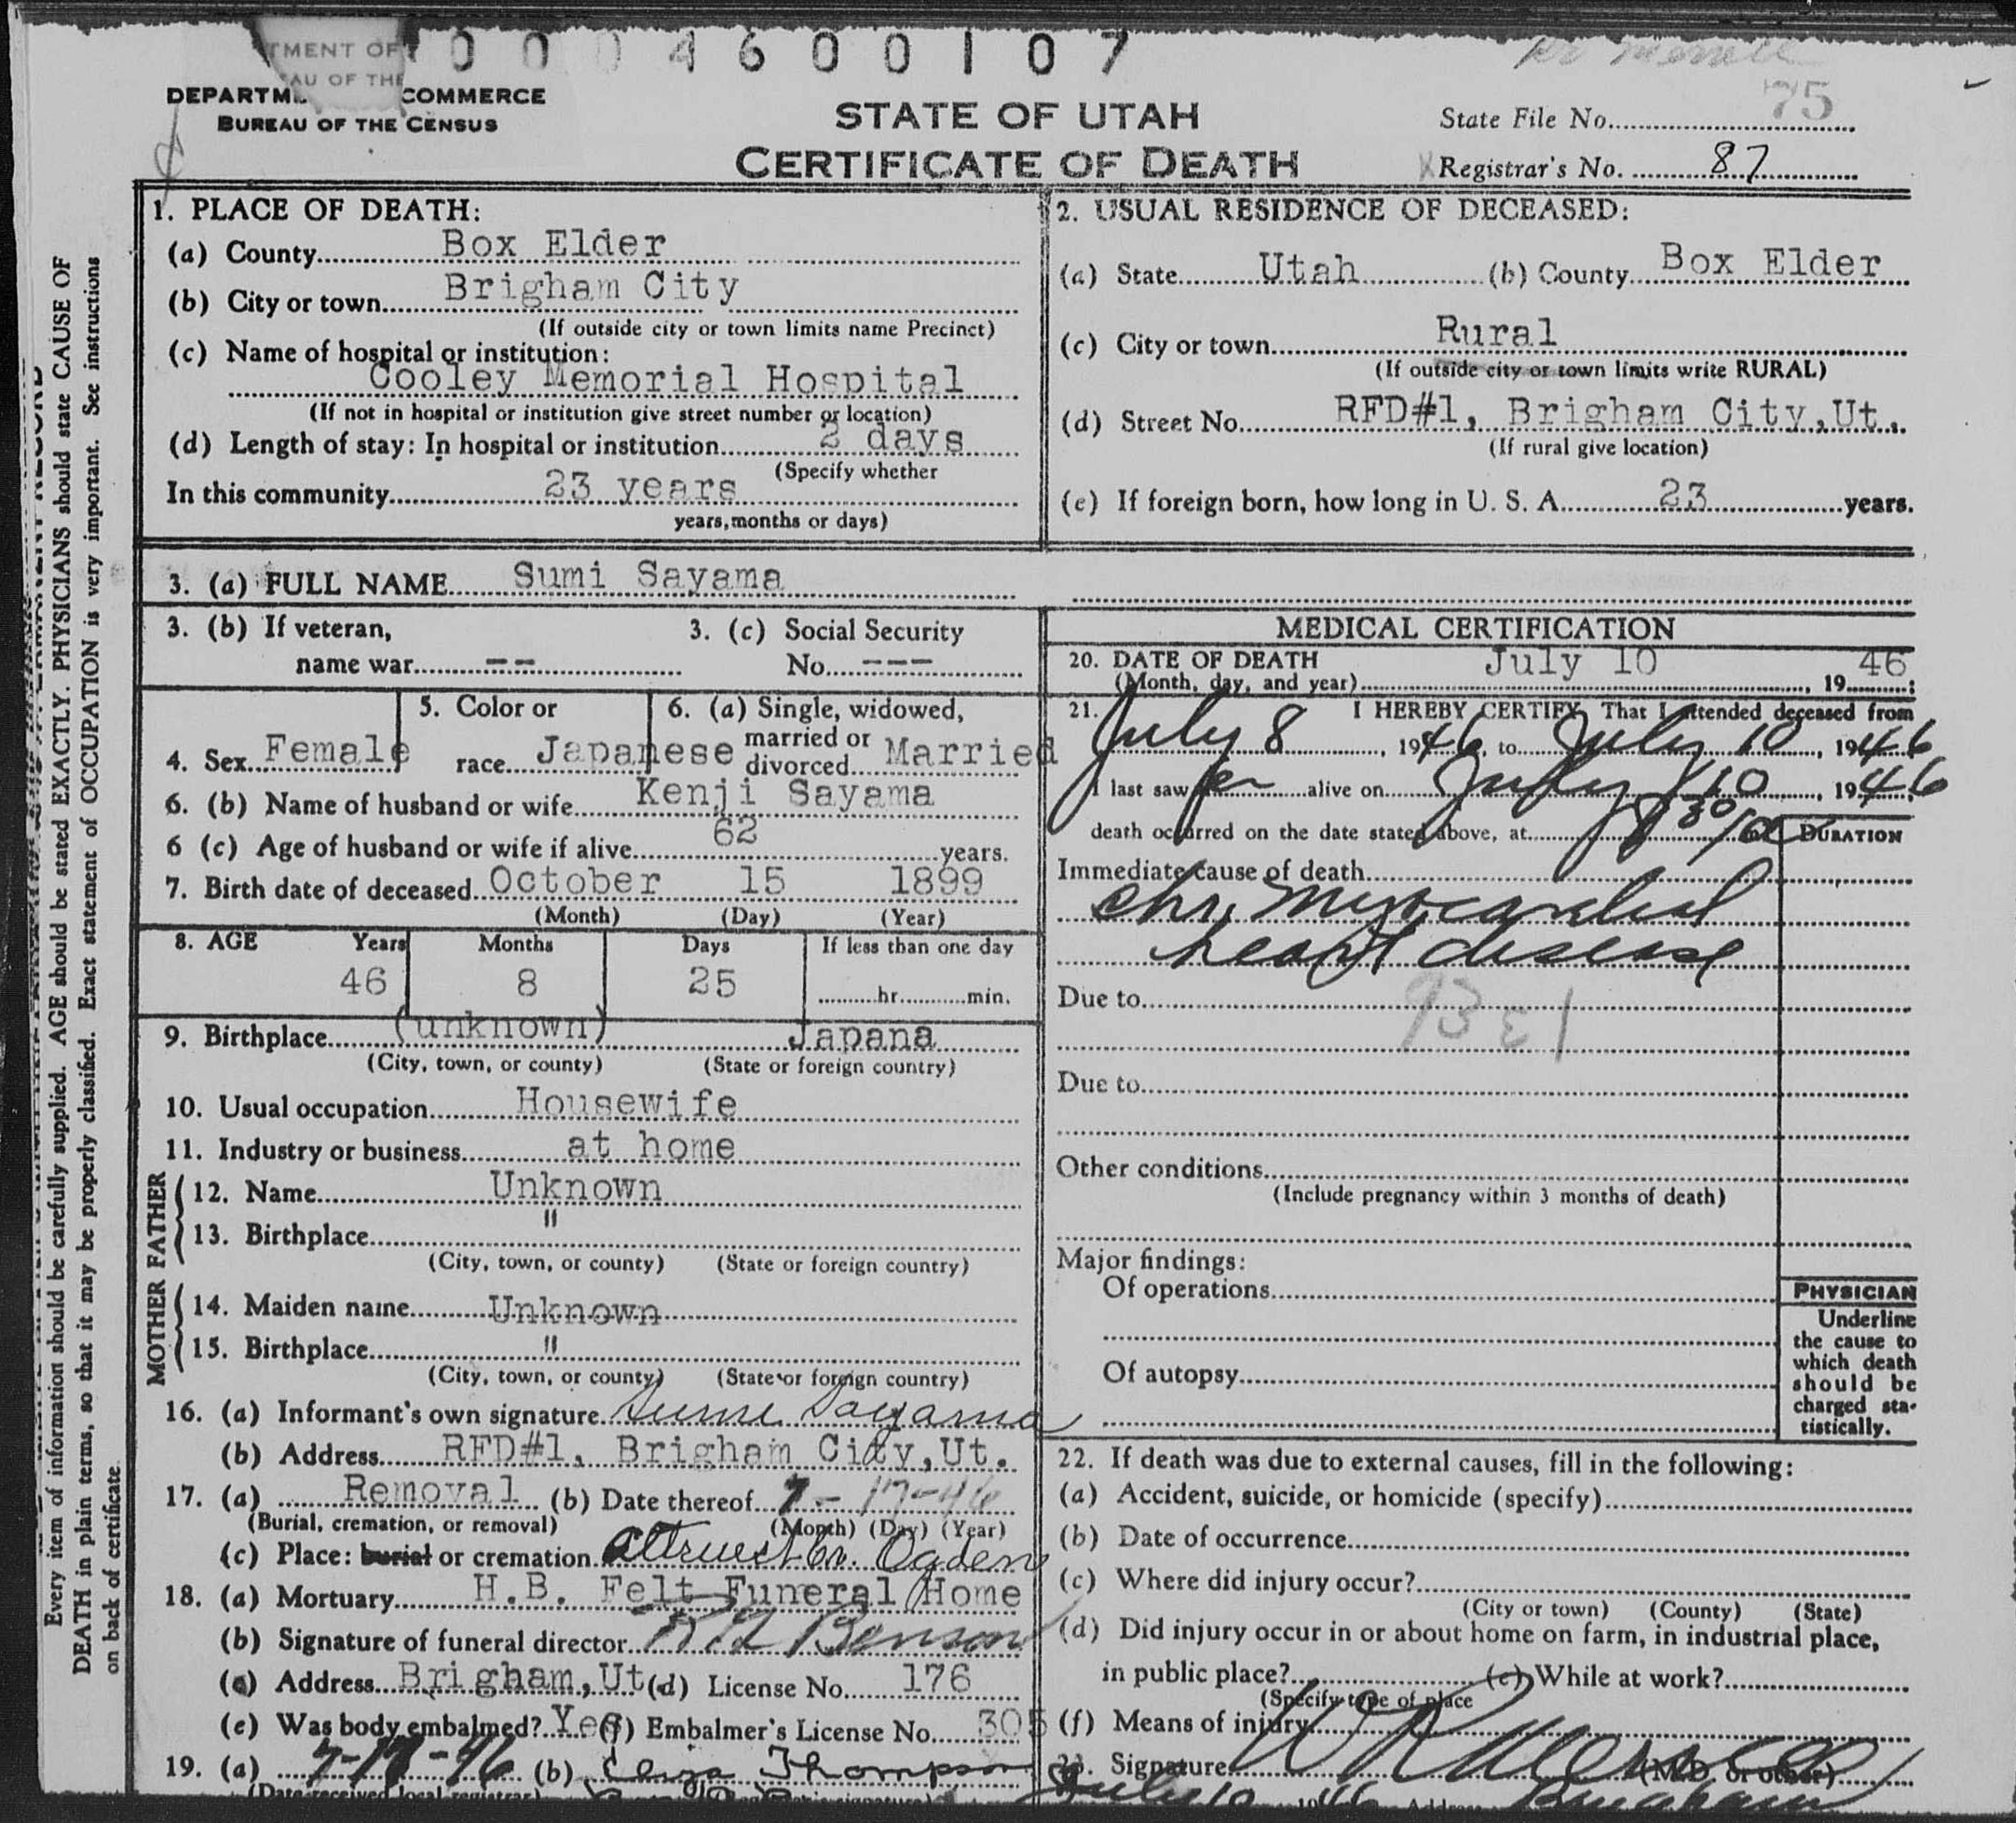 TMENT OF
AU OF THE
0 0 0 4 6 0 0 1 0 7
Dr Merrell
DEPARTM COMMERCE
BUREAU OF THE CENSUS
STATE OF UTAH
CERTIFICATE OF DEATH
State File No. 75
Registrar's No. 87
1. PLACE OF DEATH:
(a) County Box Elder
(b) City or town Brigham City
(If outside city or town limits name Precinct)
(c) Name of hospital or institution:
Cooley Memorial Hospital
(If not in hospital or institution give street number or location)
(d) Length of stay: In hospital or institution 2 days
(Specify whether
In this community 23 years
years, months or days)
2. USUAL RESIDENCE OF DECEASED:
(a) State Utah (b) County Box Elder
(c) City or town Rural
(If outside city or town limits write RURAL)
(d) Street No. RFD#1, Brigham City, Ut.
(If rural give location)
(e) If foreign born, how long in U. S. A. 23 years.
3. (a) FULL NAME Sumi Sayama
3. (b) If veteran, name war --
3. (c) Social Security No. ---
4. Sex Female
5. Color or race Japanese
6. (a) Single, widowed, married or divorced Married
6. (b) Name of husband or wife Kenji Sayama
6 (c) Age of husband or wife if alive 62 years.
7. Birth date of deceased October 15 1899
(Month) (Day) (Year)
8. AGE Years Months Days If less than one day
46 8 25 hr. min.
9. Birthplace (unknown) Japana
(City, town, or county) (State or foreign country)
10. Usual occupation Housewife
11. Industry or business at home
FATHER
12. Name Unknown
13. Birthplace "
(City, town, or county) (State or foreign country)
MOTHER
14. Maiden name Unknown
15. Birthplace "
(City, town, or county) (State or foreign country)
16. (a) Informant's own signature Sayama
(b) Address RFD#1, Brigham City, Ut.
17. (a) Removal (b) Date thereof 7-17-46
(Burial, cremation, or removal) (Month) (Day) (Year)
(c) Place: burial or cremation Ogden
18. (a) Mortuary H.B. Felt Funeral Home
(b) Signature of funeral director Benson
(c) Address Brigham, Ut (d) License No. 176
(e) Was body embalmed? Yes (f) Embalmer's License No. 305
19. (a) 7-17-46 (b) Eliza Thompson
(Date received local registrar)
MEDICAL CERTIFICATION
20. DATE OF DEATH July 10 46
(Month, day, and year) , 19 ;
21. I HEREBY CERTIFY, That I attended deceased from
July 8, 1946, to July 10, 1946
I last saw her alive on July 10, 1946
death occurred on the date stated above, at
DURATION
Immediate cause of death
chr. Myocardial
heart disease
Due to
93 E 1
Due to
Other conditions
(Include pregnancy within 3 months of death)
Major findings:
Of operations
Of autopsy
PHYSICIAN
Underline
the cause to
which death
should be
charged sta-
tistically.
22. If death was due to external causes, fill in the following:
(a) Accident, suicide, or homicide (specify)
(b) Date of occurrence
(c) Where did injury occur?
(City or town) (County) (State)
(d) Did injury occur in or about home on farm, in industrial place,
in public place? (e) While at work?
(Specify type of place
(f) Means of injury
23. Signature (M.D. or other)
July 10 1946 Address Brigham
Every item of information should be carefully supplied. AGE should be stated EXACTLY. PHYSICIANS should state CAUSE OF
DEATH in plain terms, so that it may be properly classified. Exact statement of OCCUPATION is very important. See instructions
on back of certificate